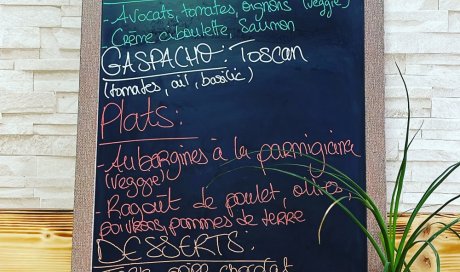 - Avocats, tomates, oignons (veggie)
- Crème ciboulette, Saumon
GASPACHO: Toscan
(tomates, ail, basilic)
Plats:
- Aubergines à la parmigiana
(veggie)
- Ragout de poulet, olives,
poivrons, pommes de terre
DESSERTS:
poire chocolat